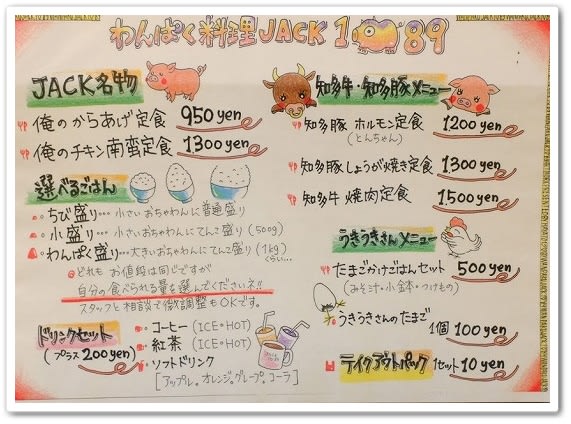 わんぱく料理JACK1089
JACK名物
俺のからあげ定食 950yen
俺のチキン南蛮定食 1300yen
選べるごはん
ちび盛り…小さいおちゃわんに普通盛り
小盛り…小さいおちゃわんにてんこ盛り(500g)
わんぱく盛り…大きいおちゃわんにてんこ盛り(1kgくらい…)
◎どれもお値段は同じですが
自分の食べられる量を選んでくださいネ!!
スタッフと相談で微調整もOKです。
ドリンクセット
(プラス200yen)
・コーヒー(ICE・HOT)
・紅茶(ICE・HOT)
・ソフトドリンク
[アップル。オレンジ。グレープ。コーラ]
知多牛・知多豚メニュー
知多豚 ホルモン定食 1200yen
(とんちゃん)
知多豚しょうが焼き定食 1300yen
知多牛 焼肉定食 1500yen
うきうきさんメニュー
たまごかけごはんセット 500yen
(みそ汁・小鉢・つけもの)
うきうきさんのたまご 1個100yen
テイクアウトパック 1セット10yen